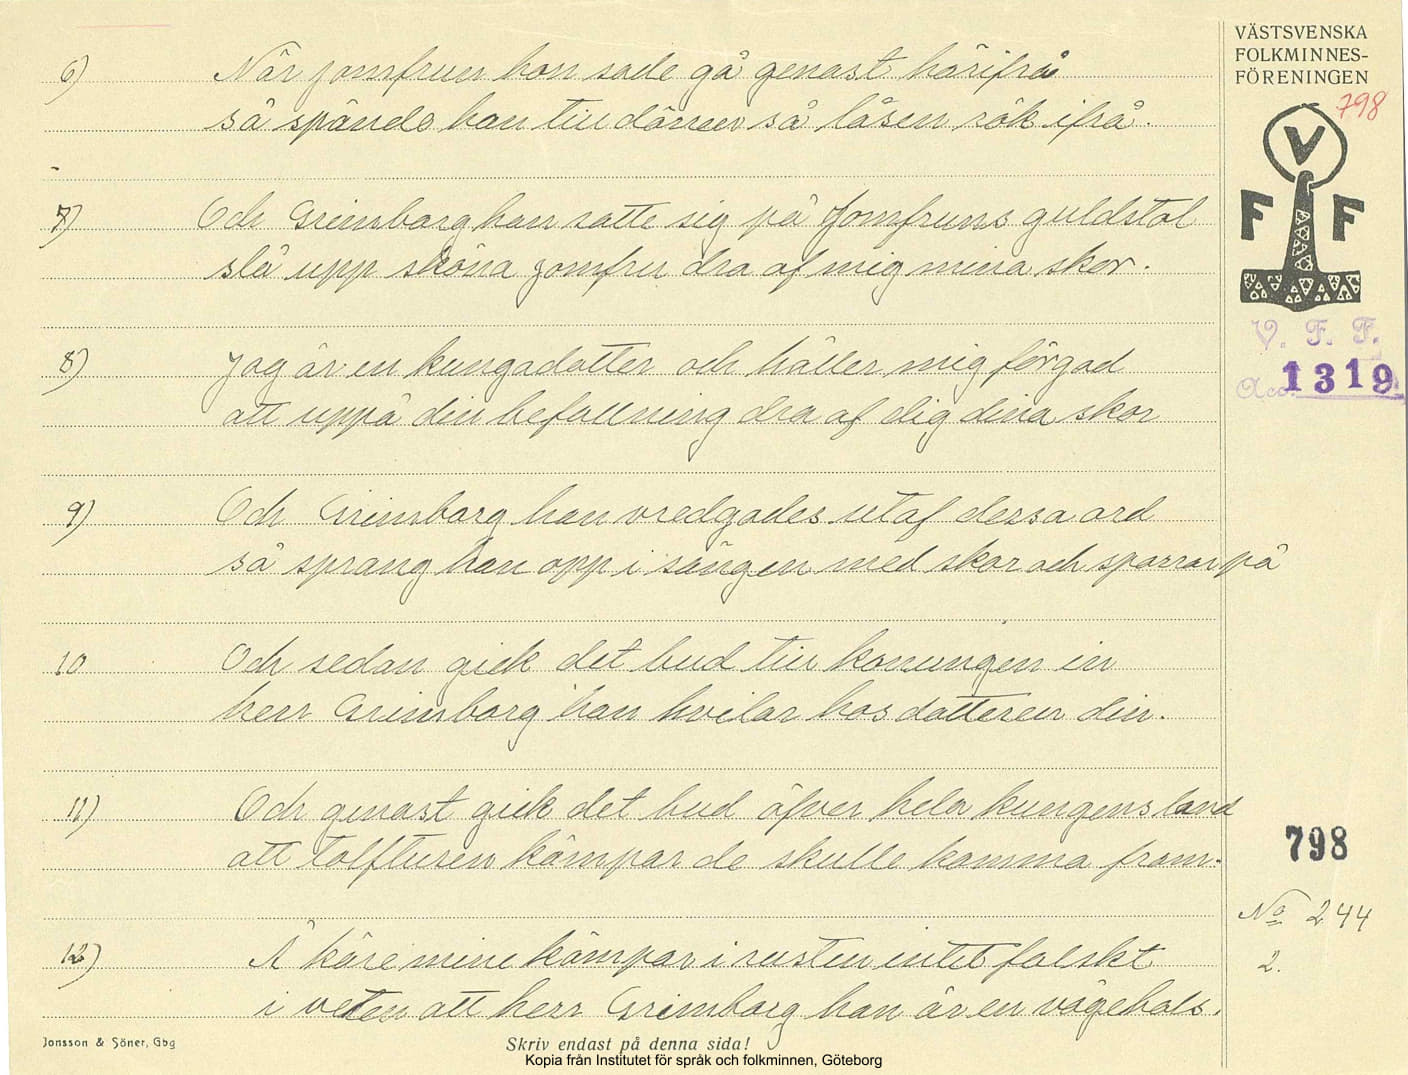 VÄSTSVENSKA
FOLKMINNES-
FÖRENINGEN
798
V
F F
V. F. F.
Acc. 1319
6) När jomfrun hon sade gå genast härifrå
så spände han till dörren så låsen rök ifrå.
7) Och Grimborg han satte sig på Jomfruns guldstol
slå upp sköna jomfru dra af mig mina skor.
8) Jag är en kungadotter och håller mig för god
att uppå din befallning dra af dig dina skor
9) Och Grimborg han vredgades utaf dessa ord
så sprang han opp i sängen med skor och sporrar på
10 Och sedan gick det bud till konungen in
herr Grimborg han hvilar hos dotteren din.
11) Och genast gick det bud öfver hela kungens land
att tolftusen kämpar de skulle komma fram.
798
No 244
2.
12) Å käre mine kämpar i rusten intet falskt
i veten att herr Grimborg han är en vågehals.
Jonsson & Söner, Gbg
Skriv endast på denna sida!
Kopia från Institutet för språk och folkminnen, Göteborg